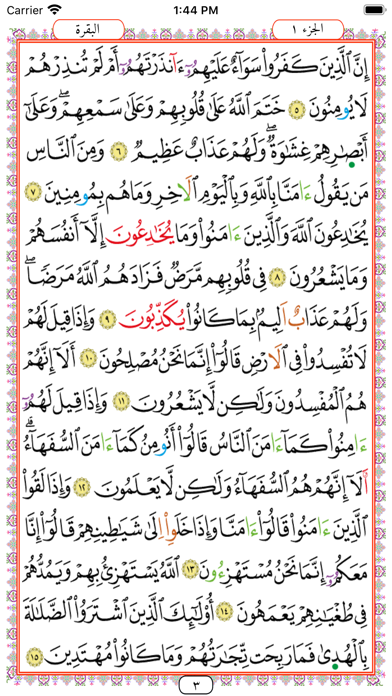 Carrier 1:44 PM
الجزء ١
البقرة
إِنَّ ٱلَّذِينَ كَفَرُواْ سَوَآءٌ عَلَيْهِمُۥٓ ءَآنذَرْتَهُمُۥٓ أَمْ لَمْ تُنذِرْهُمْ
لَا يُومِنُونَ ٥ خَتَمَ ٱللَّهُ عَلَىٰ قُلُوبِهِمْ وَعَلَىٰ سَمْعِهِمْۖ وَعَلَىٰٓ
أَبْصَٰرِهِمْ غِشَٰوَةٌۖ وَلَهُمْ عَذَابٌ عَظِيمٌۖ ٦ وَمِنَ ٱلنَّاسِ
مَنْ يَقُولُ ءَامَنَّا بِٱللَّهِ وَبِٱلْيَوْمِ ٱلَاخِرِ وَمَا هُم بِمُومِنِينَ ٧
يُخَٰدِعُونَ ٱللَّهَ وَٱلَّذِينَ ءَامَنُواْ وَمَا يُخَٰدِعُونَ إِلَّآ أَنفُسَهُمْ
وَمَا يَشْعُرُونَۖ ٨ فِى قُلُوبِهِم مَّرَضٌ فَزَادَهُمُ ٱللَّهُ مَرَضاۖ
وَلَهُمْ عَذَابٌ اَلِيمٌۢ بِمَا كَانُواْ يُكَذِّبُونَۖ ٩ وَإِذَا قِيلَ لَهُمْ
لَا تُفْسِدُواْ فِى ٱلَارْضِ قَالُوٓاْ إِنَّمَا نَحْنُ مُصْلِحُونَۖ ١٠ أَلَآ إِنَّهُمْ
هُمُ ٱلْمُفْسِدُونَ وَلَٰكِن لَّا يَشْعُرُونَۖ ١١ وَإِذَا قِيلَ لَهُمُۥٓ
ءَامِنُواْ كَمَآ ءَامَنَ ٱلنَّاسُ قَالُوٓاْ أَنُومِنُ كَمَآ ءَامَنَ ٱلسُّفَهَآءُۖ
أَلَآ إِنَّهُمْ هُمُ ٱلسُّفَهَآءُ وَلَٰكِن لَّا يَعْلَمُونَۖ ١٢ وَإِذَا لَقُواْ
ٱلَّذِينَ ءَامَنُواْ قَالُوٓاْ ءَامَنَّا وَإِذَا خَلَوِاْ اِلَىٰ شَيَٰطِينِهِمْ قَالُوٓاْ إِنَّا
مَعَكُمُۥٓ إِنَّمَا نَحْنُ مُسْتَهْزِءُونَۖ ١٣ ٱللَّهُ يَسْتَهْزِئُ بِهِمْ وَيَمُدُّهُمْ
فِى طُغْيَٰنِهِمْ يَعْمَهُونَۖ ١٤ أُوْلَٰٓئِكَ ٱلَّذِينَ ٱشْتَرَوُاْ ٱلضَّلَٰلَةَ
بِٱلْهُدَىٰ فَمَا رَبِحَت تِّجَٰرَتُهُمْ وَمَا كَانُواْ مُهْتَدِينَۖ ١٥
٣